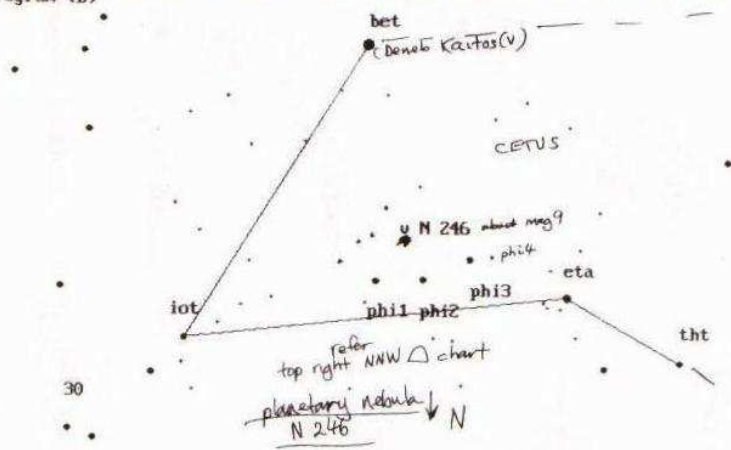 bet
(Deneb Kaitos (v)
CETUS
N 246 about mag 9
phi4
eta
phi3
iot
phi1 phi2
tht
refer
top right NNW △ chart
30
planetary nebula ↓ N
N 246